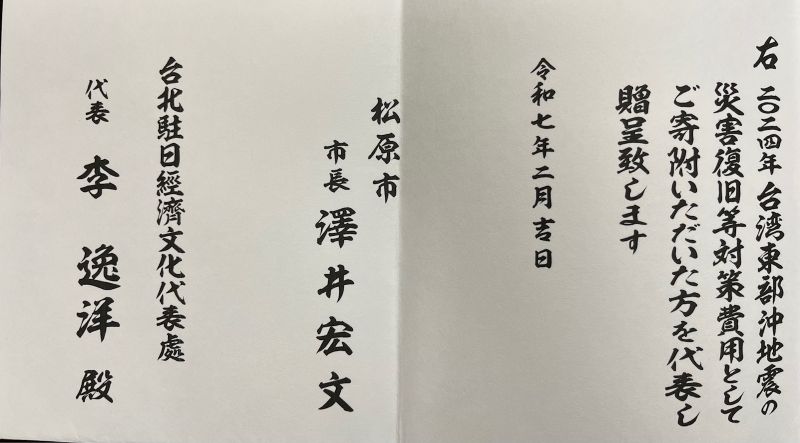 右 二〇二四年台湾東部沖地震の
災害復旧等対策費用として
ご寄附いただいた方を代表し
贈呈致します
令和七年二月吉日
松原市
市長 澤井宏文
台北駐日經濟文化代表處
代表 李 逸洋 殿